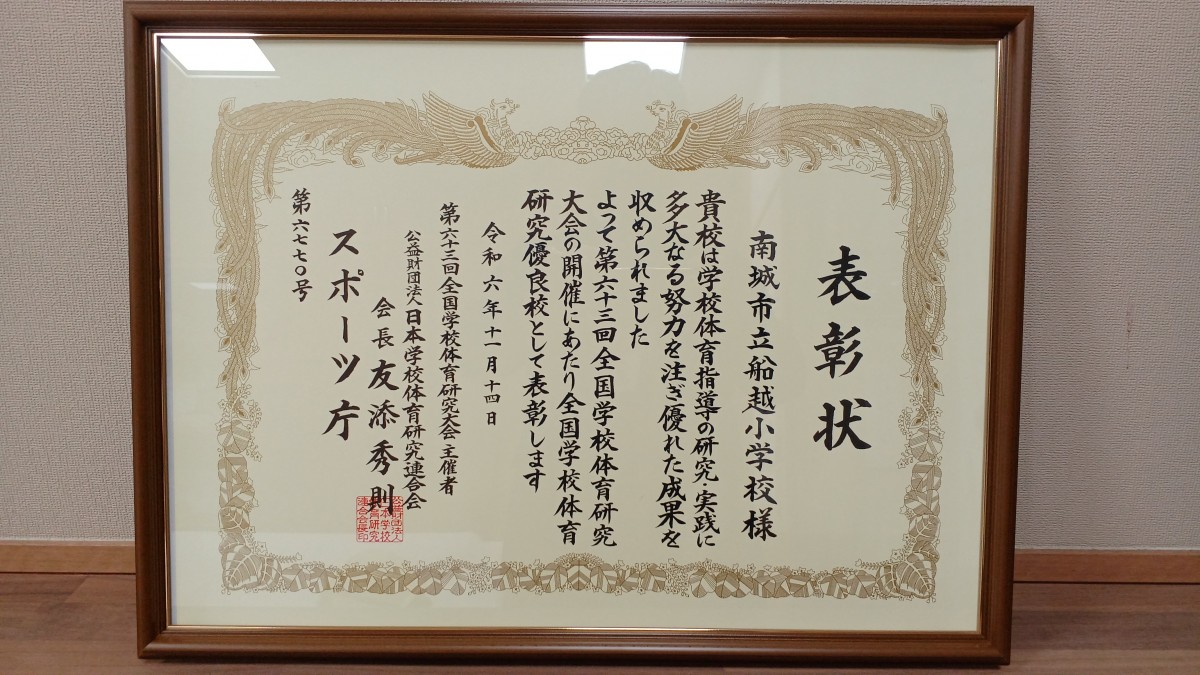 表彰状
南城市立船越小学校様
貴校は学校体育指導の研究・実践に
多大なる努力を注ぎ優れた成果を
収められました
よって第六十三回全国学校体育研究
大会の開催にあたり全国学校体育
研究優良校として表彰します
令和六年十一月十四日
第六十三回全国学校体育研究大会主催者
公益財団法人日本学校体育研究連合会
会長友添秀則
公益財団法人
日本学校
体育研究
連合会長印
スポーツ庁
第六七七〇号